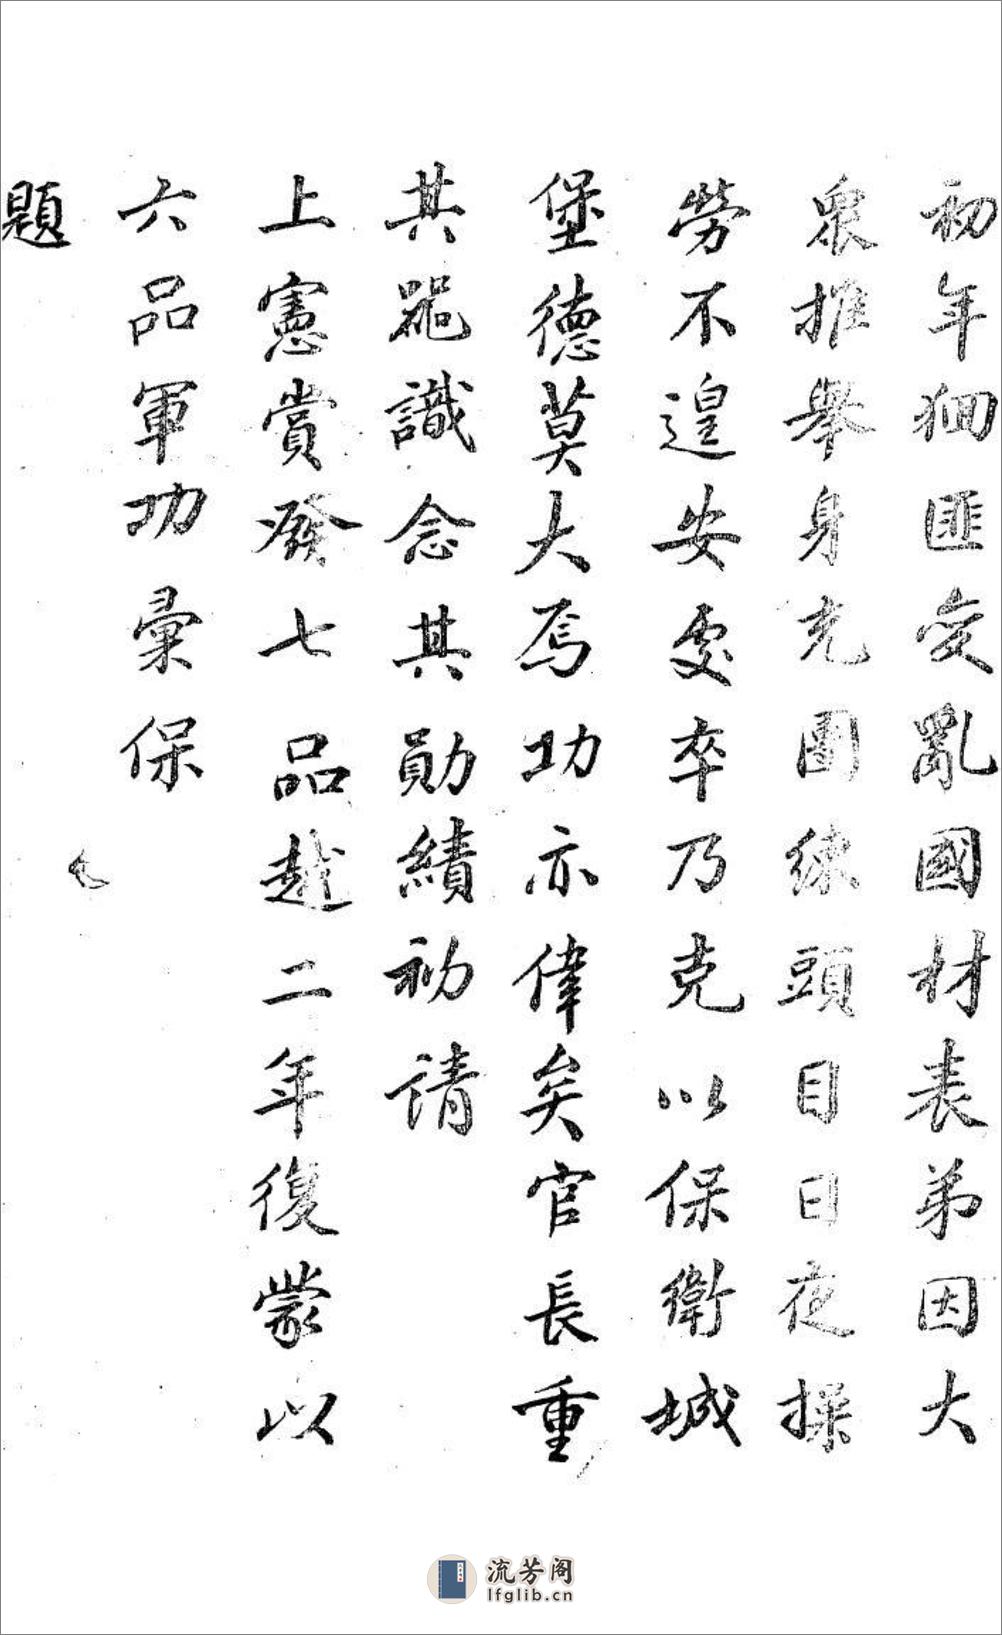 初年㹛匪变亂國材表弟因大
衆推舉身充團練頭目日夜操
勞不遑安处卒乃克以保衛城
堡德莫大焉功亦偉矣官長重
其器識念其勛績初請
上憲賞發七品越二年復蒙以
六品軍功彙保
題
流芳阁
lfglib.cn